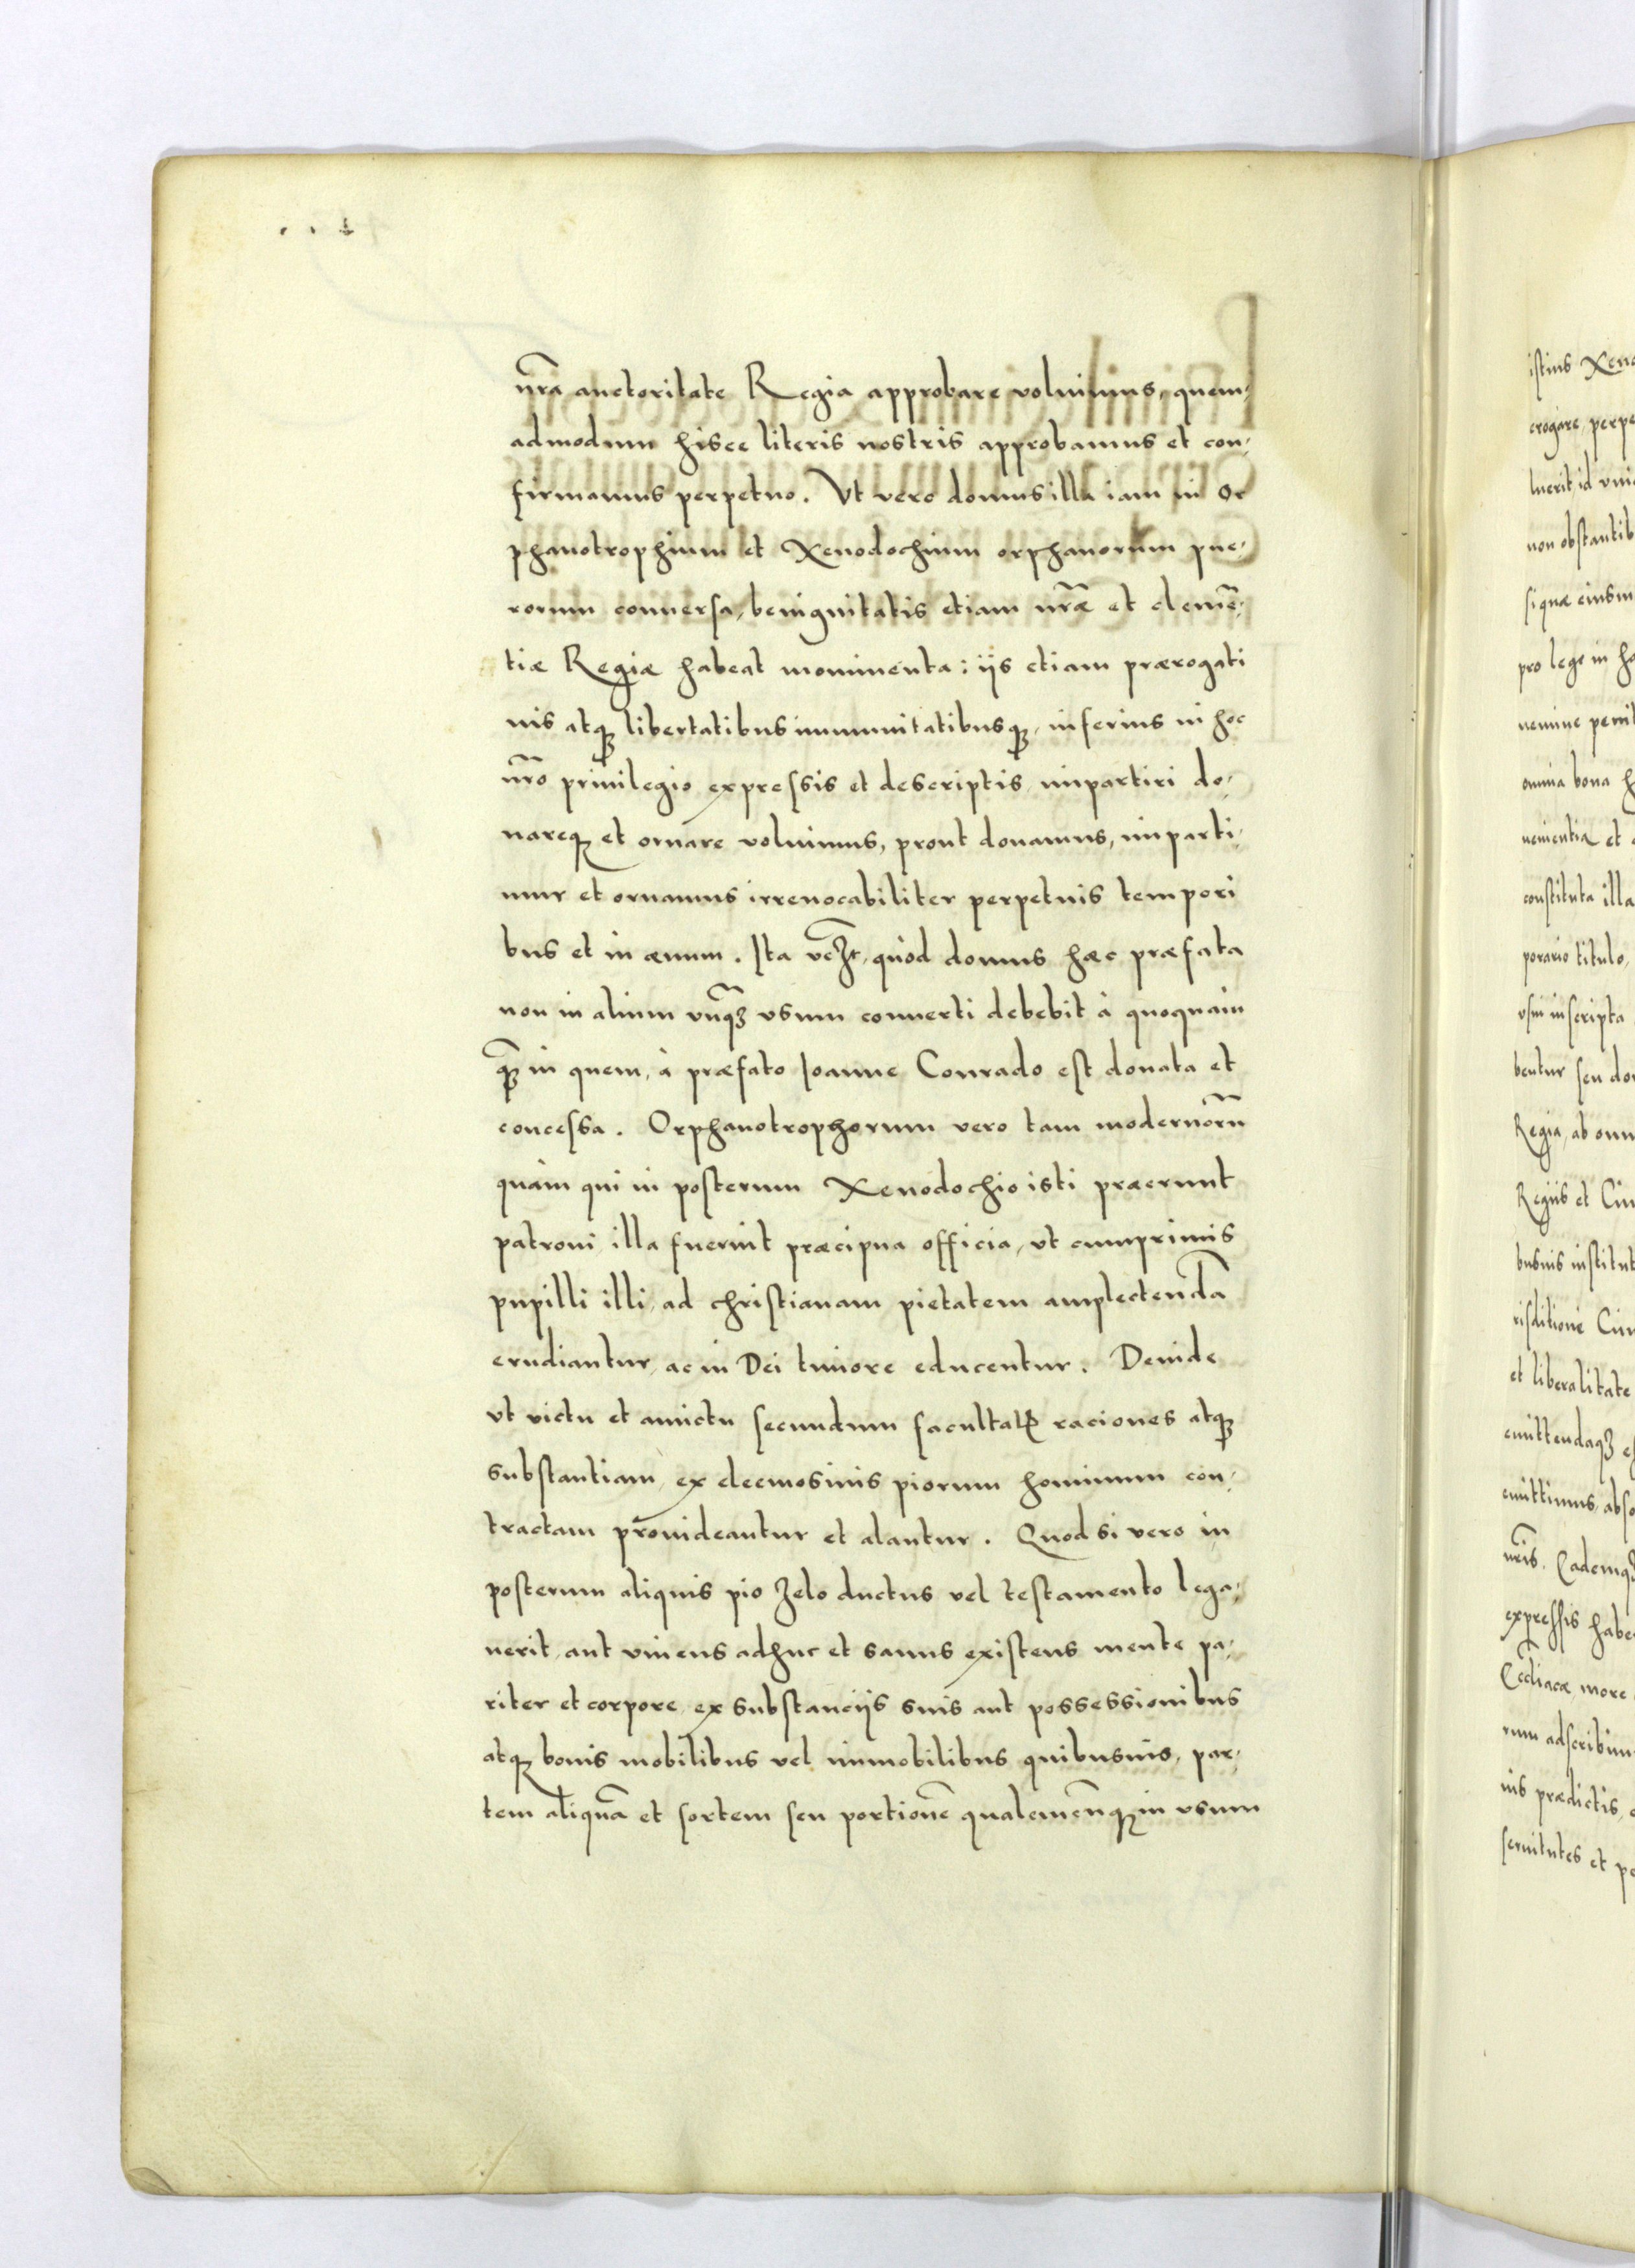 nr̃a auctoritate Regia approbare voluimus, quem-
admodum hisce literis nostris approbamus et con-
firmamus perpetuo. Vt vero domus illa iam in Or
phanotrophium et Xenodochium orphanorum pue-
rorum conuersa, benignitatis etiam nr̃æ et clemẽ-
tiæ Regiæ habeat monimenta: iis etiam prærogati
uis atqꝫ libertatibus immunitatibusqꝫ, inferius in hoc
nr̃o priuilegio expressis et descriptis impartiri do-
nareqꝫ et ornare voluimus, prout donamus, imparti-
mur et ornamus irreuocabiliter perpetuis tempori
bus et in æuum. Ita vcꝫt, quòd domus hæc præfata
non in alium vnq̃ꝫ vsum conuerti debebit à quoquam
q̃ꝫ in quem, à præfato Joanne Conrado est donata et
concessa. Orphanotrophorum vero tam modernorũ
quàm qui in posterum Xenodochio isti præerunt
patroni illa fuerint præcipua officia, vt cumprimis
pupilli illi, ad christianam pietatem amplectendã
erudiantur, ac in Dei timore educentur. Deinde
vt victu et amictu secundum facultatꝭ raciones atqꝫ
substantiam, ex eleemosinis piorum hominum con-
tractam prouideantur et alantur. Quod si vero in
posterum aliquis pio zelo ductus vel testamento lega-
uerit, aut viuens adhuc et sanus existens mente pa-
riter et corpore, ex substanciis suis aut possessionibus
atqꝫ bonis mobilibus vel immobilibus quibusuis, par-
tem aliquã et sortem seu portionẽ qualemcũqꝫ in vsum
istius
erogare, 
luerit, id
non
si quæ
pro lege in
nemine
omnia bona
uenientia et
constituta illa
porario titulo,
vsui inscripta
bentur seu
Regia, ab
Regiis et
et liberalitate
expressis
more
prædictis,
seruitutes et